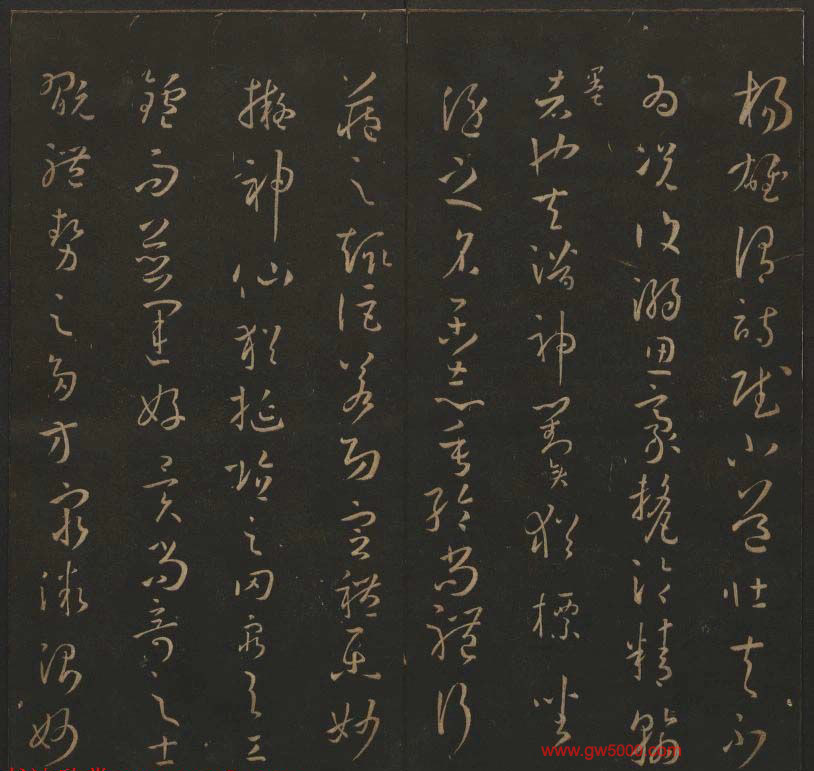 楊雄謂詩賦小道壯夫不
為況復溺思豪氂淪精翰
墨
者也夫潛神對弈猶標坐
隱之名樂志垂綸尚體行
藏之趣詎若功宣禮樂妙
擬神仙猶挻埴之罔窮與工
鑪而並運好異尚奇之士
翫體勢之多方窮微測妙
www.gw5000.com